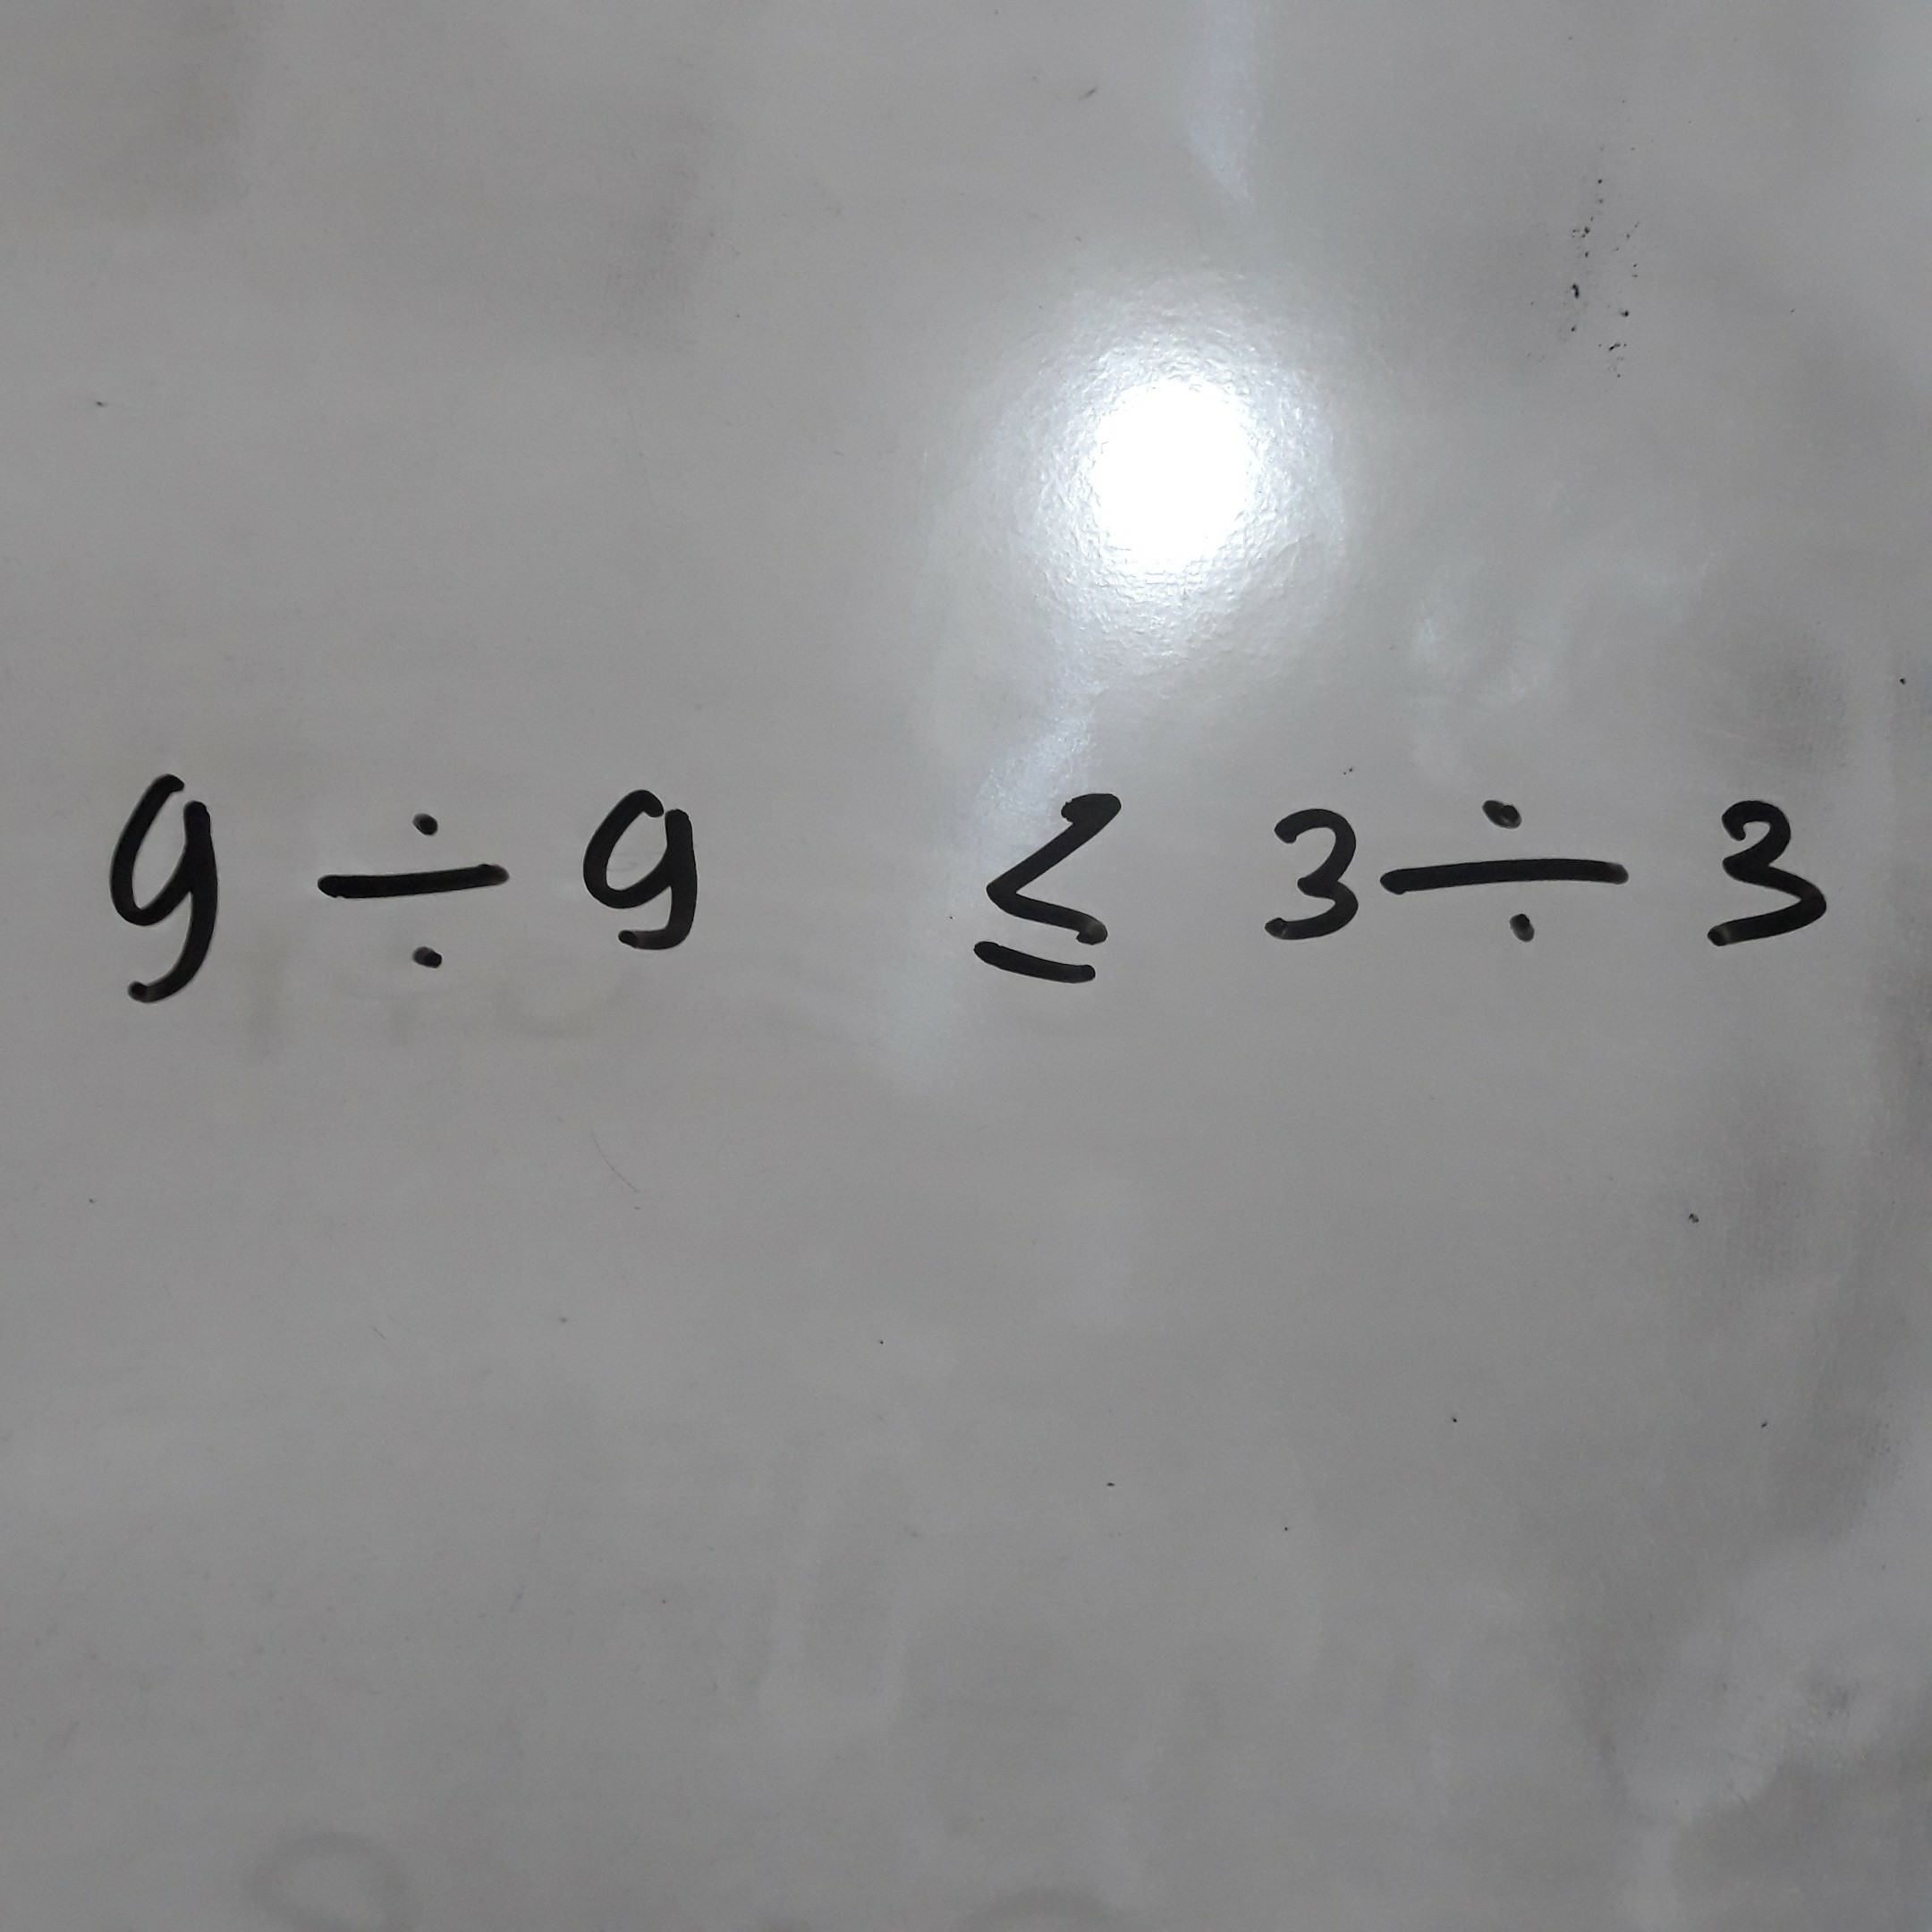 9 ÷ 9 ≤ 3 ÷ 3